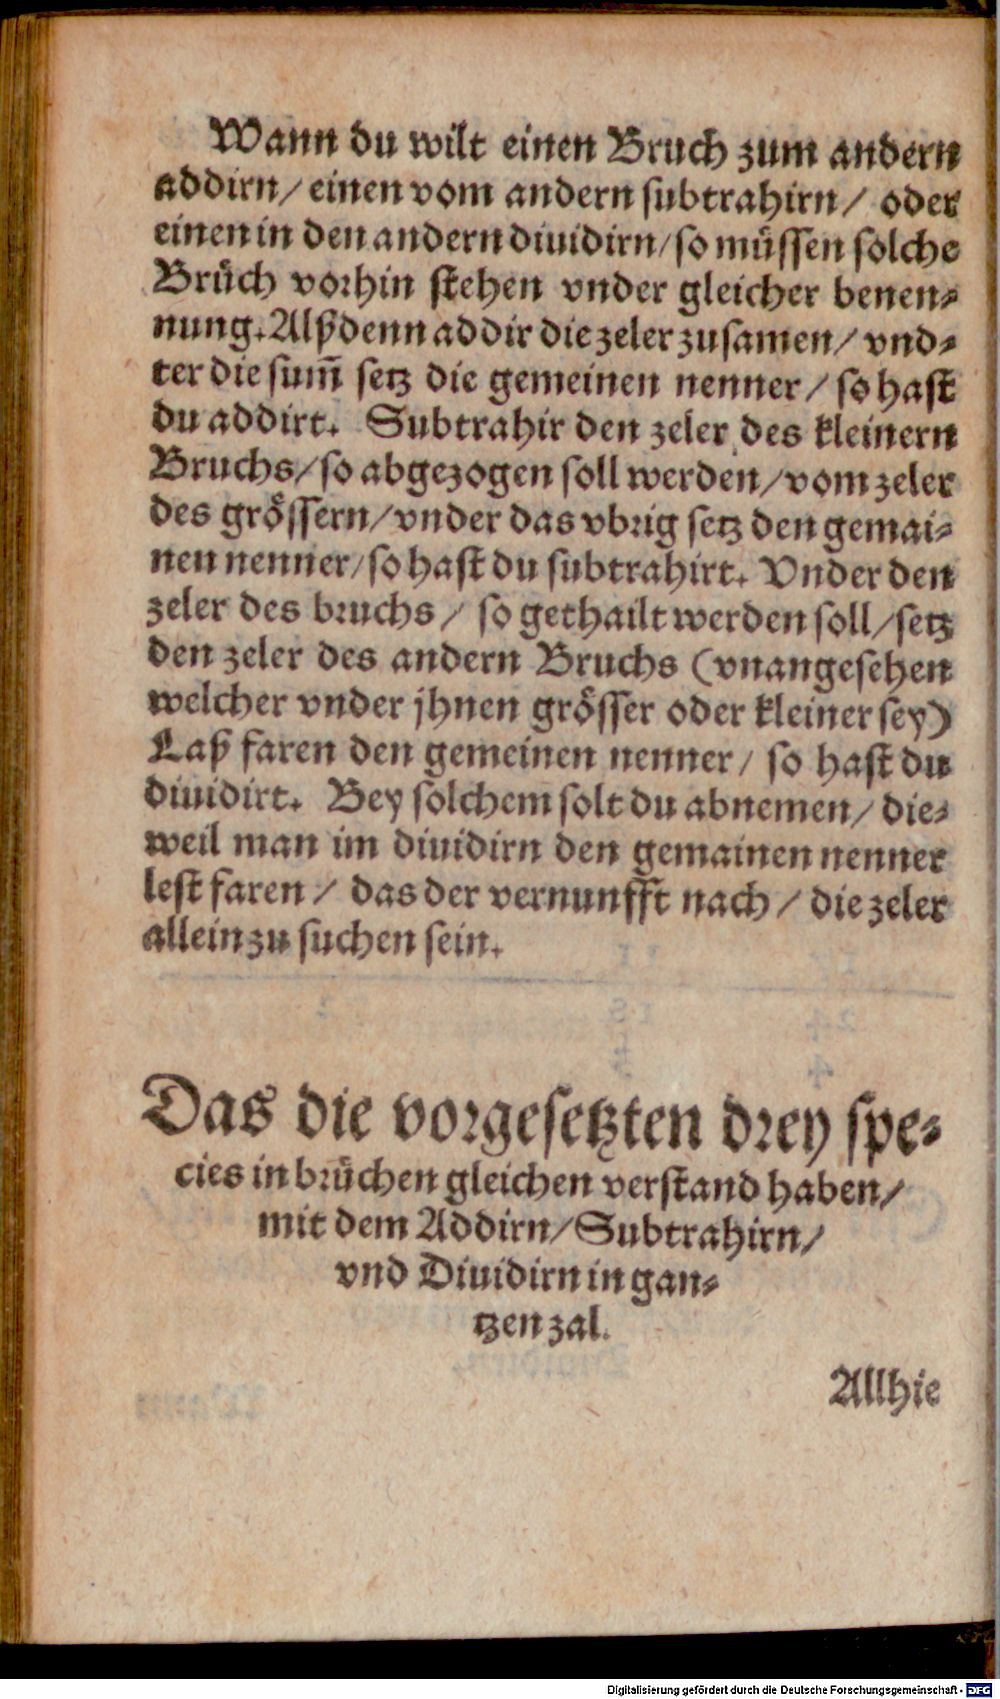 Wann du wilt einen Bruch zum andern
addirn/ einen vom andern subtrahirn/ oder
einen in den andern diuidirn/ so müssen solche
Brüch vorhin stehen vnder gleicher benen-
nung. Alßdenn addir die zeler zusamen/ vnd-
ter die sum̃ setz die gemeinen nenner/ so hast
du addirt. Subtrahir den zeler des kleinern
Bruchs/ so abgezogen soll werden/ vom zeler
des grössern/ vnder das vbrig setz den gemai-
nen nenner/ so hast du subtrahirt. Vnder den
zeler des bruchs/ so gethailt werden soll/ setz
den zeler des andern Bruchs (vnangesehen
welcher vnder jhnen grösser oder kleiner sey)
Laß faren den gemeinen nenner/ so hast du
diuidirt. Bey solchem solt du abnemen/ die-
weil man im diuidirn den gemainen nenner
lest faren/ das der vernunfft nach/ die zeler
allein zu suchen sein.
Das die vorgesetzten drey spe-
cies in brüchen gleichen verstand haben/
mit dem Addirn/ Subtrahirn/
vnd Diuidirn in gan-
tzen zal.
Allhie
Digitalisierung gefördert durch die Deutsche Forschungsgemeinschaft - DFG